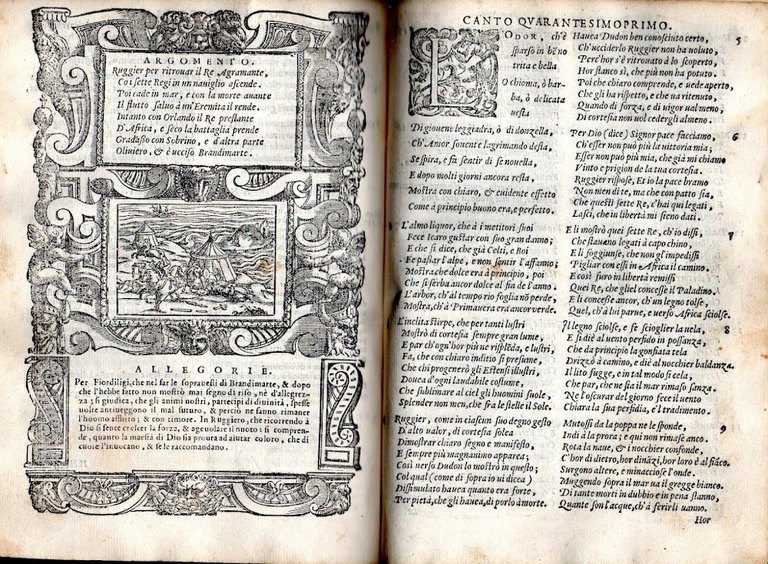 ARGOMENTO.
Ruggier per ritrouar il Re Agramante,
Co i sette Regi in un nauiglio ascende.
Poi cade in mar, e con la morte auante
Il flutto saluo à m'Eremita il rende.
Intanto con Orlando il Re prestante
D'Africa, e seco la battaglia prende
Gradasso con Sobrino, e d'altra parte
Oliuiero, & è ucciso Brandimarte.
ALLEGORIE.
Per Fiordiligi, che nel far le soprauesti di Brandimarte, & dopo
che l'hebbe fatto non mostrò mai segno di riso, nè d'allegrez
za; si giudica, che gli animi nostri, partecipi di diuinità, spesse
uolte antiueggono il mal futuro, & perciò ne fanno rimaner
l'huomo afflitto; & con timore. In Ruggiero, che ricorrendo à
Dio si sente crescer la forza, & ageuolare il nuoto: si compren
de, quanto la maestà di Dio sia pronta ad aiutar coloro, che di
cuore l'inuocano, & se le raccomandano.
CANTO QVARANTESIMOPRIMO.
L'ODOR, ch'è
sparso in bē no
trita e bella
O chioma, ò bar
ba, ò delicata
uesta
Di giouene leggiadro, ò di donzella,
Ch'Amor souente lagrimando desta,
Se spira, e fa sentir di se nouella,
E dopo molti giorni ancora resta
Mostra con chiaro, & euidente effetto
Come à principio buono era, e perfetto.
L'almo liquor, che à i metitori suoi
Fece Icaro gustar con suo gran danno;
E che si dice, che già Celti, e Boi
Fe passar l'alpe, e non sentir l'affanno;
Mostra, che dolce era à principio, poi
Che si serba ancor dolce al fin de l'anno.
L'arbor, ch'al tempo rio foglia nō perde,
Mostra, ch'à Primauera era ancor uerde.
L'inclita stirpe, che per tanti lustri
Mostrò di cortesia sempre gran lume,
E par ch'ogn'hor più ne risplēda, e lustri,
Fa, che con chiaro inditio si presume,
Che chi progenerò gli Estensi illustri
Douea d'ogni laudabile costume,
Che sublimare al ciel gli huomini suole,
Splender non men, che fra le stelle il Sole.
Ruggier, come in ciascun suo degno gesto
D'alto ualor, di cortesia solea
Dimostrar chiaro segno e manifesto,
E sempre più magnanimo apparea;
Così uerso Dudon lo mostrò in questo;
Col qual (come di sopra io ui dicea)
Dissimulato hauea quanto era forte,
Per pietà, che gli hauea, di porlo à morte.
Hauea Dudon ben conosciuto certo, 5
Ch'ucciderlo Ruggier non ha uoluto,
Perc'hor s'è ritrouato à lo scoperto,
Hor stanco sì, che più non ha potuto.
Poi che chiaro comprende, e uede aperto,
Che gli ha rispetto, e che ua ritenuto,
Quando di forza, e di uigor ual meno,
Di cortesia non uol cedergli almeno.
Per Dio (dice) Signor pace facciamo, 6
Ch'esser non può più la uittoria mia;
Esser non può più mia, che già mi chiamo
Vinto e prigion de la tua cortesia.
Ruggier rispose, Et io la pace bramo
Non men di te, ma che con patto sia,
Che questi sette Re, c'hai qui legati,
Lasci, che in libertà mi sieno dati.
E li mostrò quei sette Re, ch'io dissi, 7
Che stauano legati à capo chino,
E li soggiunse, che non gl'impedissi
Pigliar con essi in Africa il camino.
E così furo in libertà remissi
Quei Re, che gliel concesse il Paladino.
E li concesse ancor, ch'un legno tolse,
Quel, ch'à lui parue, e uerso Africa sciolse.
Il legno sciolse, e fe scioglier la uela, 8
E si diè al uento perfido in possanza,
Che da principio la gonfiata tela
Drizzò à camino, e diè al nocchier baldanza.
Il lito fugge, e in tal modo si cela,
Che par, che ne sia il mar rimaso sanza.
Ne l'oscurar del giorno fece il uento
Chiara la sua perfidia, e'l tradimento.
Mutossi da la poppa ne le sponde, 9
Indi à la prora; e qui non rimase anco.
Rota la naue, & i nocchier confonde,
C'hor di dietro, hor dināzi, hor loro è al fiāco.
Surgono altere, e minacciose l'onde.
Muggendo sopra il mar ua il gregge bianco.
Di tante morti in dubbio e in pena stanno,
Quante son l'acque, ch'à ferirli uanno.
Hor